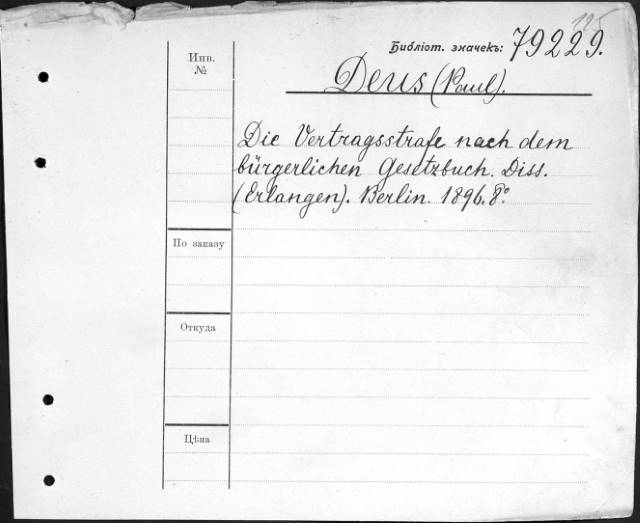 Библіот. значекъ: 79229.
Инв.
№
Deus (Paul).
Die Vertragsstrafe nach dem
bürgerlichen Gesetzbuch. Diss.
(Erlangen). Berlin. 1896. 8°
По заказу
Откуда
Цѣна